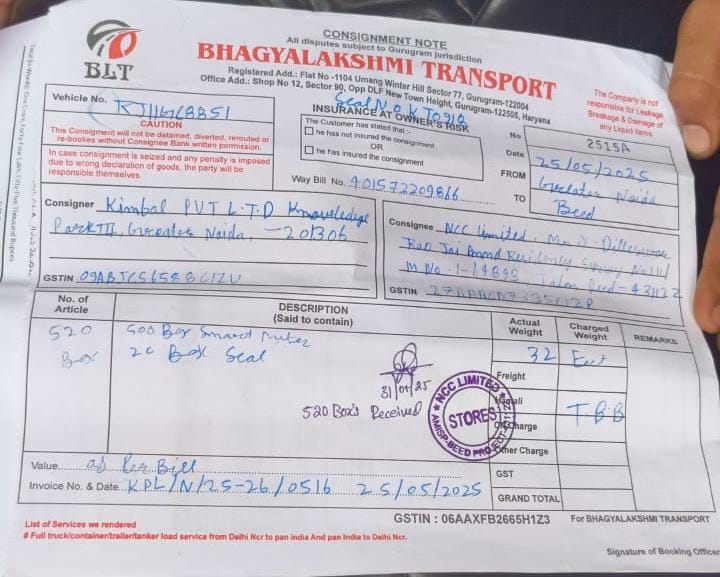 CONSIGNMENT NOTE
All disputes subject to Gurugram jurisdiction
BLT
BHAGYALAKSHMI TRANSPORT
Registered Add.: Flat No -1104 Umang Winter Hill Sector 77, Gurugram-122004
Office Add.: Shop No 12, Sector 90, Opp DLF New Town Height, Gurugram-122505, Haryana
The Company is not
responsible for Leakage
Breakage & Damage of
any Liquid items
Vehicle No.
CAUTION
This Consignment will not be detained, diverted, rerouted or
re-bookes without Consignee Bank written permission.
In case consignment is seized and any penalty is imposed
due to wrong declaration of goods, the party will be
responsible themselves.
Seal No
INSURANCE AT OWNER'S RISK
The Customer has stated that :-
he has not insured the consignment
OR
he has insured the consignment
Way Bill No. 401572209866
No 2515A
Date 25/05/2025
FROM Greater Noida
TO Beed
Consigner Kimbal PVT L.T.D Knowledge
Park III, Greater Noida, -201306
GSTIN
Consignee NCC Limited,
Rao Jai
M No
GSTIN
No. of
Article
DESCRIPTION
(Said to contain)
Actual
Weight
Charged
Weight
REMARKS
520
Box
500 Box Smart
20 Box Seal
32 Feet
Freight
T.B.B
31/05/25
520 Box's Received
NCC LIMITED
STORES
Other Charge
GST
GRAND TOTAL
Value as Per Bill
Invoice No. & Date KPL/N/25-26/0516 25/05/2025
GSTIN : 06AAXFB2665H1Z3
For BHAGYALAKSHMI TRANSPORT
List of Services we rendered
# Full truck/container/trailer/tanker load service from Delhi Ncr to pan india And pan India to Delhi Ncr.
Signature of Booking Officer